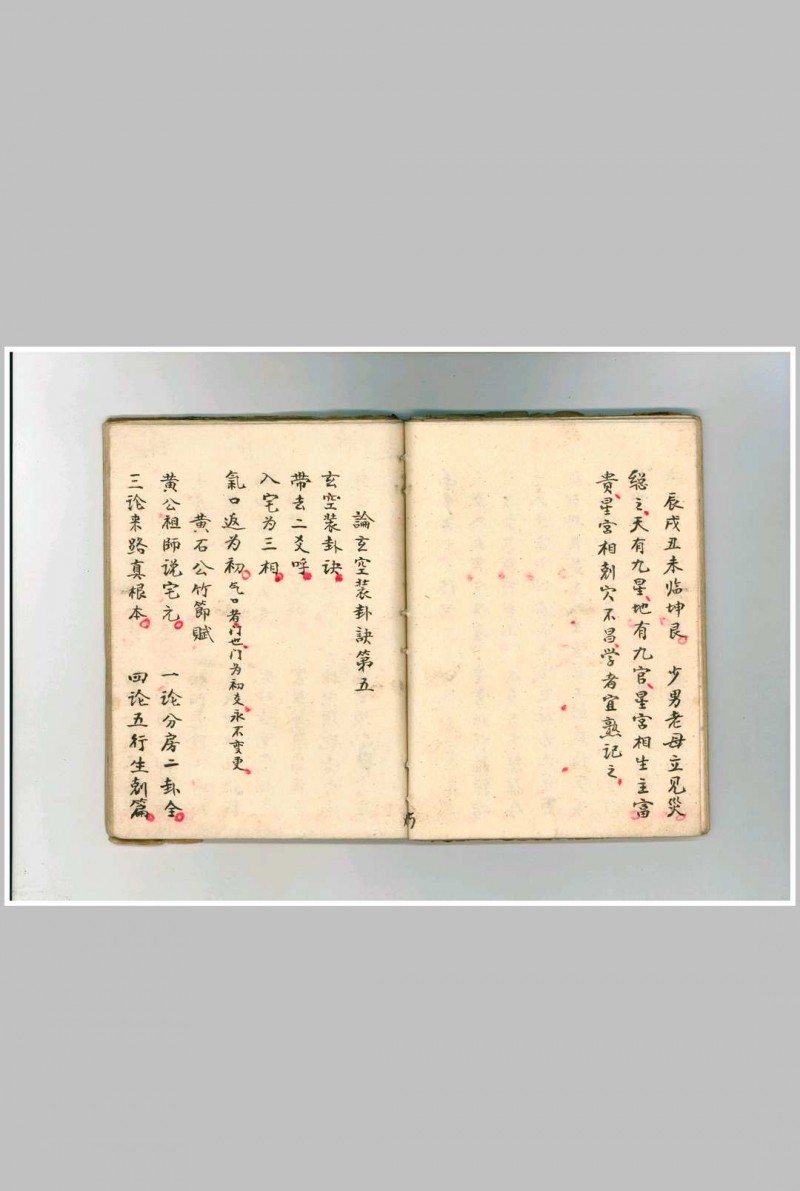 辰戌丑未临坤艮。 少男老母立见災。
総之、天有九星、地有九宫、星宫相生主富
貴、星宫相剋穴不昌、学者宜熟记之、
論玄空装卦訣第五
玄空装卦诀。
帶去二爻呼。
入宅为三相。
氣口返为初。气口者门也、门为初爻、永不变更、
黄石公竹節賦
黄公祖師说宅元。 一论分房二卦全。
三论来路真根本。 四论五行生剋篇。
15